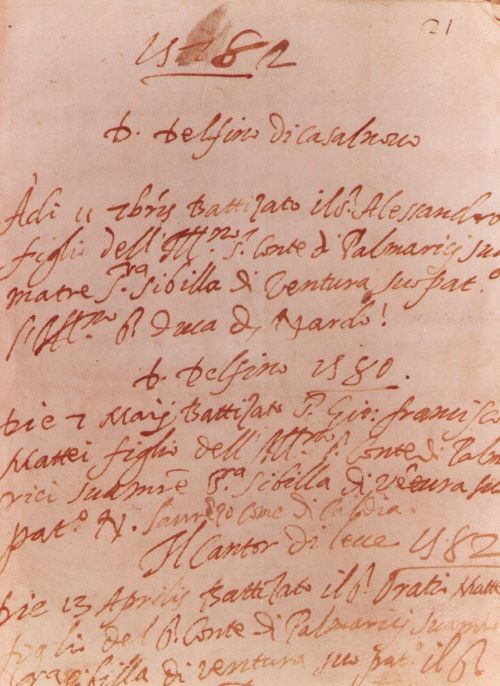 21
1582
D. Delfino di casalnovo
Adi 11 7bris Battizato il S.r Alessandro
figlio dell'Ill.mo S. Conte di Palmarici sua
matre S.ra Sibilla di Ventura suo pat.o
l'Ill.mo S. Duca di Nardo!
D. Delfino 1580.
Die 7 Maij Battizato S. Gio: francisco
Mattei figlio dell'Ill.mo S. Conte di Palma
rici sua mre S.ra Sibilla di vetura suo
pat.o N.
Il Cantor di lecce 1582
Die 13 Aprilis Battizato il S. Oratio Matte
figlio del S. Conte di Palmarici sua
Sibilla di ventura suo pat.o il S